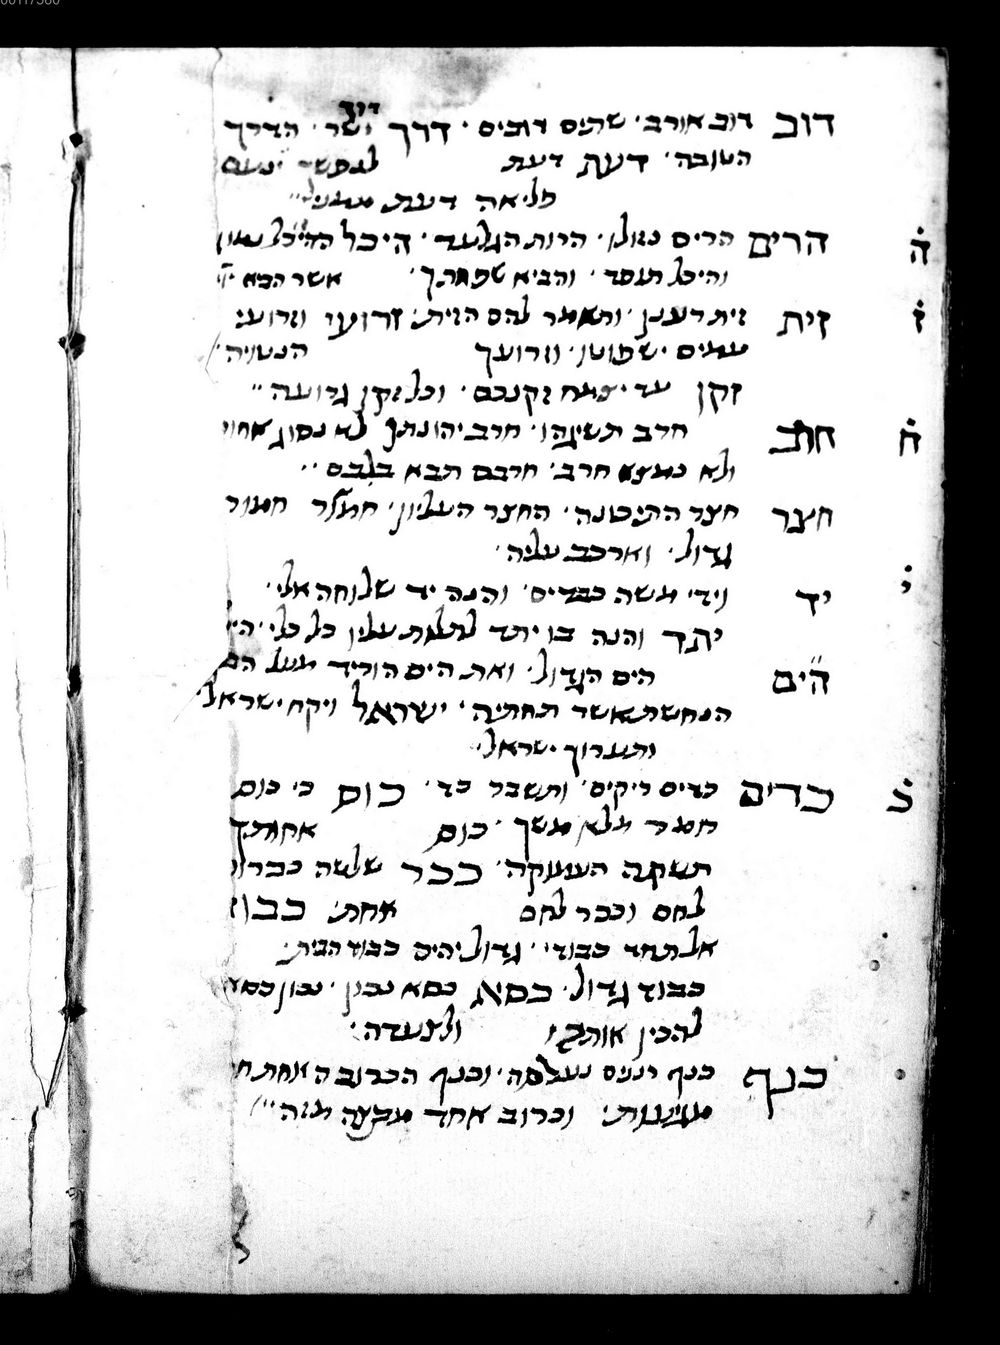 דרך
דוב דוב אורב׳ שתים דובים׳ דרך ישר׳ הדרך
הטובה׳ דעת דעת לנפשך ינעם
פליאה דעת ממני
ה הרים הרים נגולו׳ הרות הגלעד׳ היכל ההיכל
והיכל תוסד׳ והביא שפחתך׳ אשר הבא
ז זית זית רענן׳ ותאמר להם הזית׳ זרועי וזרועי
עמים ישפוטו׳ וזרועך הנטויה׳
זקן עד יצמח זקנכם׳ וכל זקן גרועה
ח חרב חרב תשיגהו׳ חרב יהונתן לא נסוג אחור
ולא נמצא חרב׳ חרבם תבא בלבם
חצר חצר התיכונה׳ החצר העליון׳ חמור
גדול׳ וארכב עליה׳
י יד וידי משה כבדים׳ והנה יד שלוחה אלי׳
יתד והנה בו יתד לתלות עליו כל כלי׳
הים הים הגדול׳ ואת הים הוריד מעל
הנחשת אשר תחתיה׳ ישראל ויקח ישראל׳
ותערוך ישראל׳
כ כדים כדים ריקים׳ ותשבר כד׳ כוס כי כוס
חמר מלא מסך׳ כוס אחותך
תשקה העמוקה׳ ככר שלשה ככרות
לחם וככר לחם אחת׳ כבוד
אל תחד כבודי׳ גדול יהיה כבוד הבית׳
כבוד גדול׳ כסא כסא נכון׳ נכון כסאך
להכין אותה ולסעדה׳
כנף כנף רננים נעלסה׳ וכנף הכרוב האחת
מגיעות׳ וכרוב אחד מקצה מזה